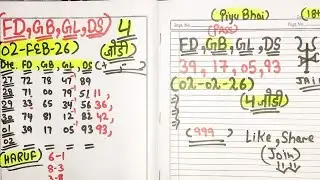 FD, GB, GL, DS 4
02-FEB-26 (जोडी)
Dte. FD, GB, GL, DS
27 72 78 47 89
28 00 78 79 51 11,
29 33 65 34 56 36,
30 74 81 12 82 42,
01 39 17 05 93 93,
02
HARUF 6-1
8-3
(Piyu Bhai)
(PASS)
FD, GB, GL, DS
39, 17, 05, 93
(02-02-26)
(4 जोडी)
(999)
Like, Share
(Join)